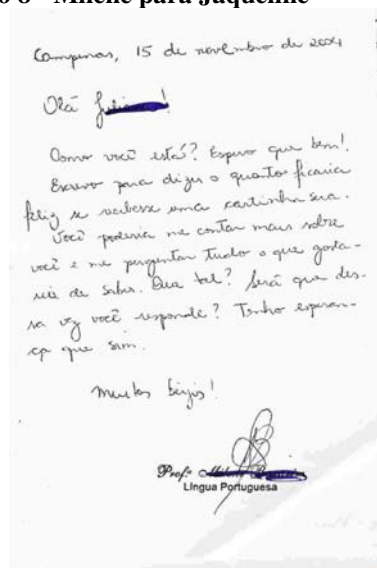 Milene para Jaqueline
Campinas, 15 de novembro de 2004
Olá
Como você está? Espero que bem!
Escrevo para dizer o quanto ficaria
feliz se recebesse uma cartinha sua.
Você poderia me contar mais sobre
você e me perguntar tudo o que gosta-
ria de saber. Que tal? Será que des-
sa vez você responde? Tenho esperan-
ça que sim.
Muitos beijos!
Profª
Língua Portuguesa